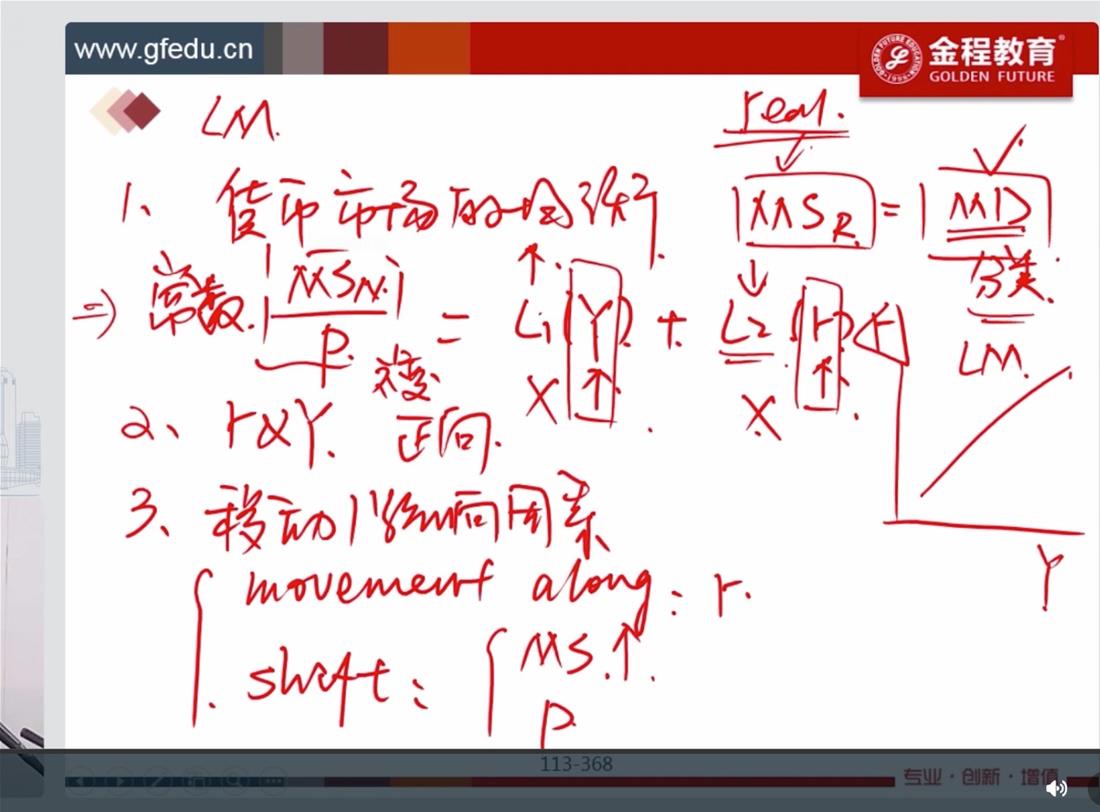 www.gfedu.cn
金程教育®
GOLDEN FUTURE
LM.
real.
1、货币市场的均衡
MS_R = MD
分类.
=) 常数. MS_N / P. 不变 = L1(Y) + L2(r)
X X
2、r & Y. 正向.
3、移动 影响因素
movement along: r.
shift: MS.↑.
P.
r
LM.
Y
113-368
专业·创新·增值